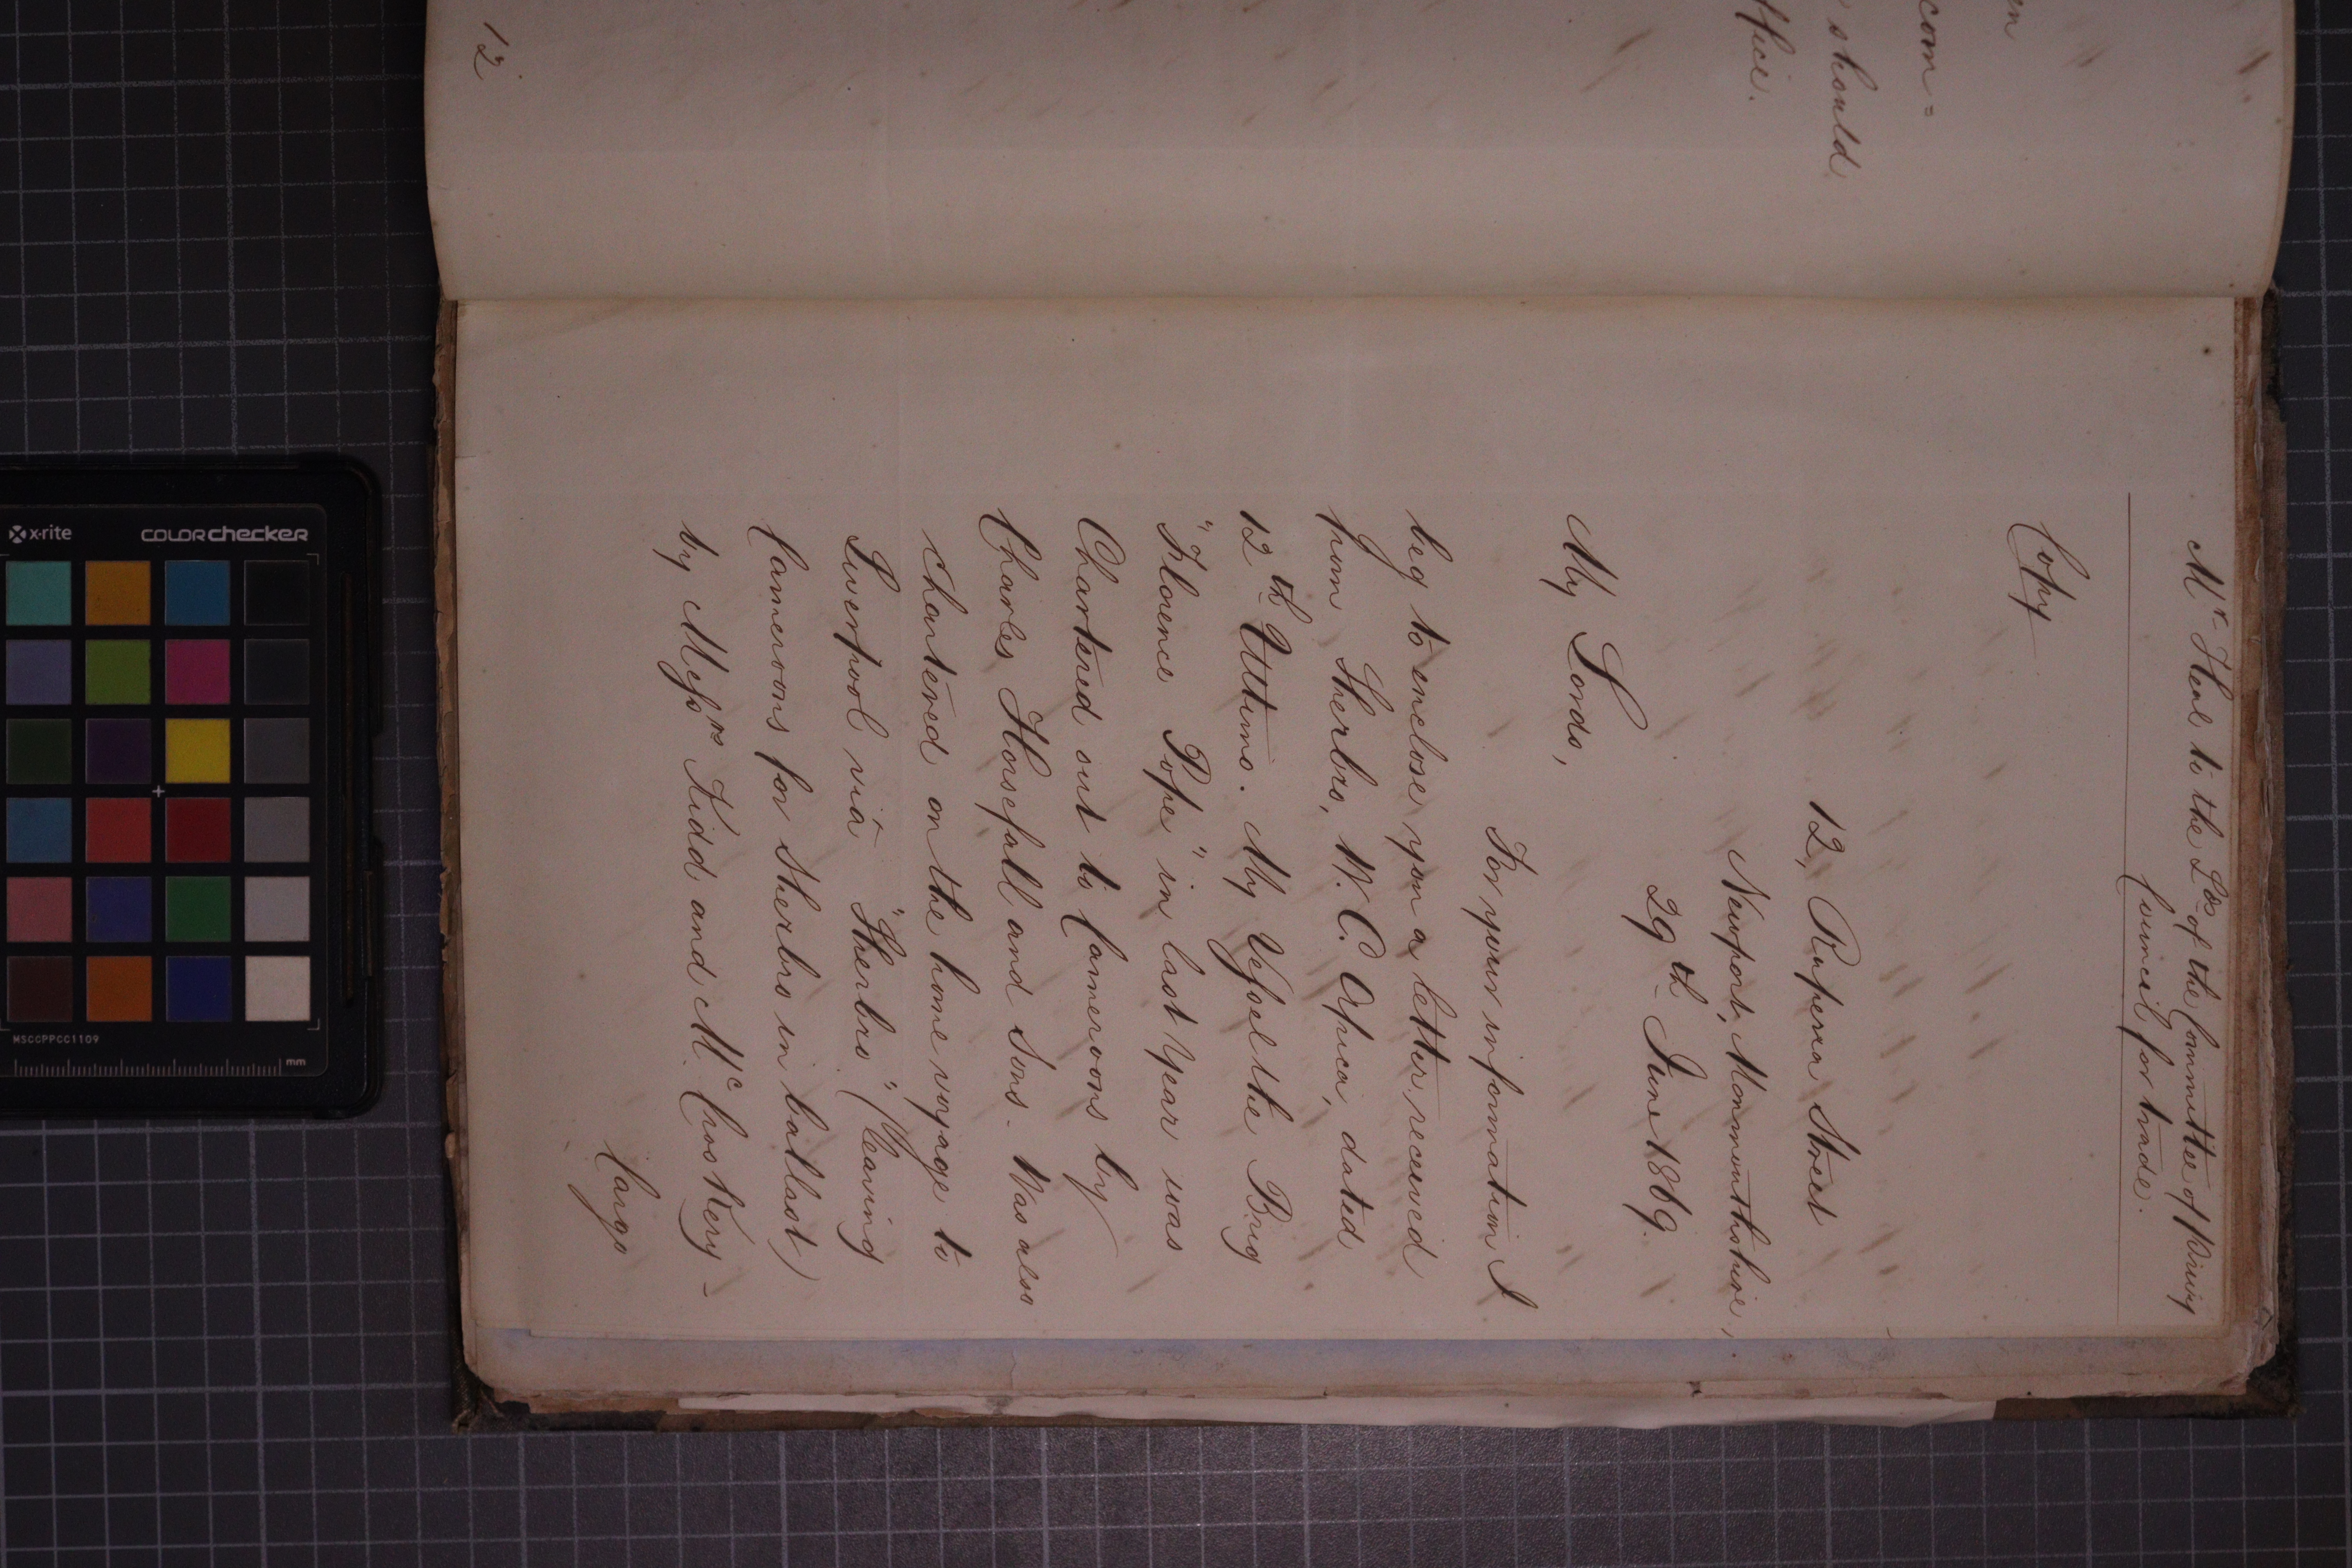 en
com=
should
ffice.
12
Mr. Heal to the Lds of the Committee of Privy
Council for trade.
Copy
12, Ruperra Street
Newport, Monmouthshire,
29th June 1869.
My Lords,
For your information I
beg to enclose you a letter, received
from Sherbro, W. C. Africa, dated
12th Ultimo. My Vessel the Brig
"Florence Pope" in last Year was
Chartered out to Cameroons by
Charles Horsefall and Sons. Was also
chartered on the home voyage to
Liverpool via "Sherbro" (Cleaving
Cameroons for Sherbro in ballast)
by Messrs Kidd and McCroskery -
Cargo
x-rite
colorchecker
MSCCPPCC1109
mm